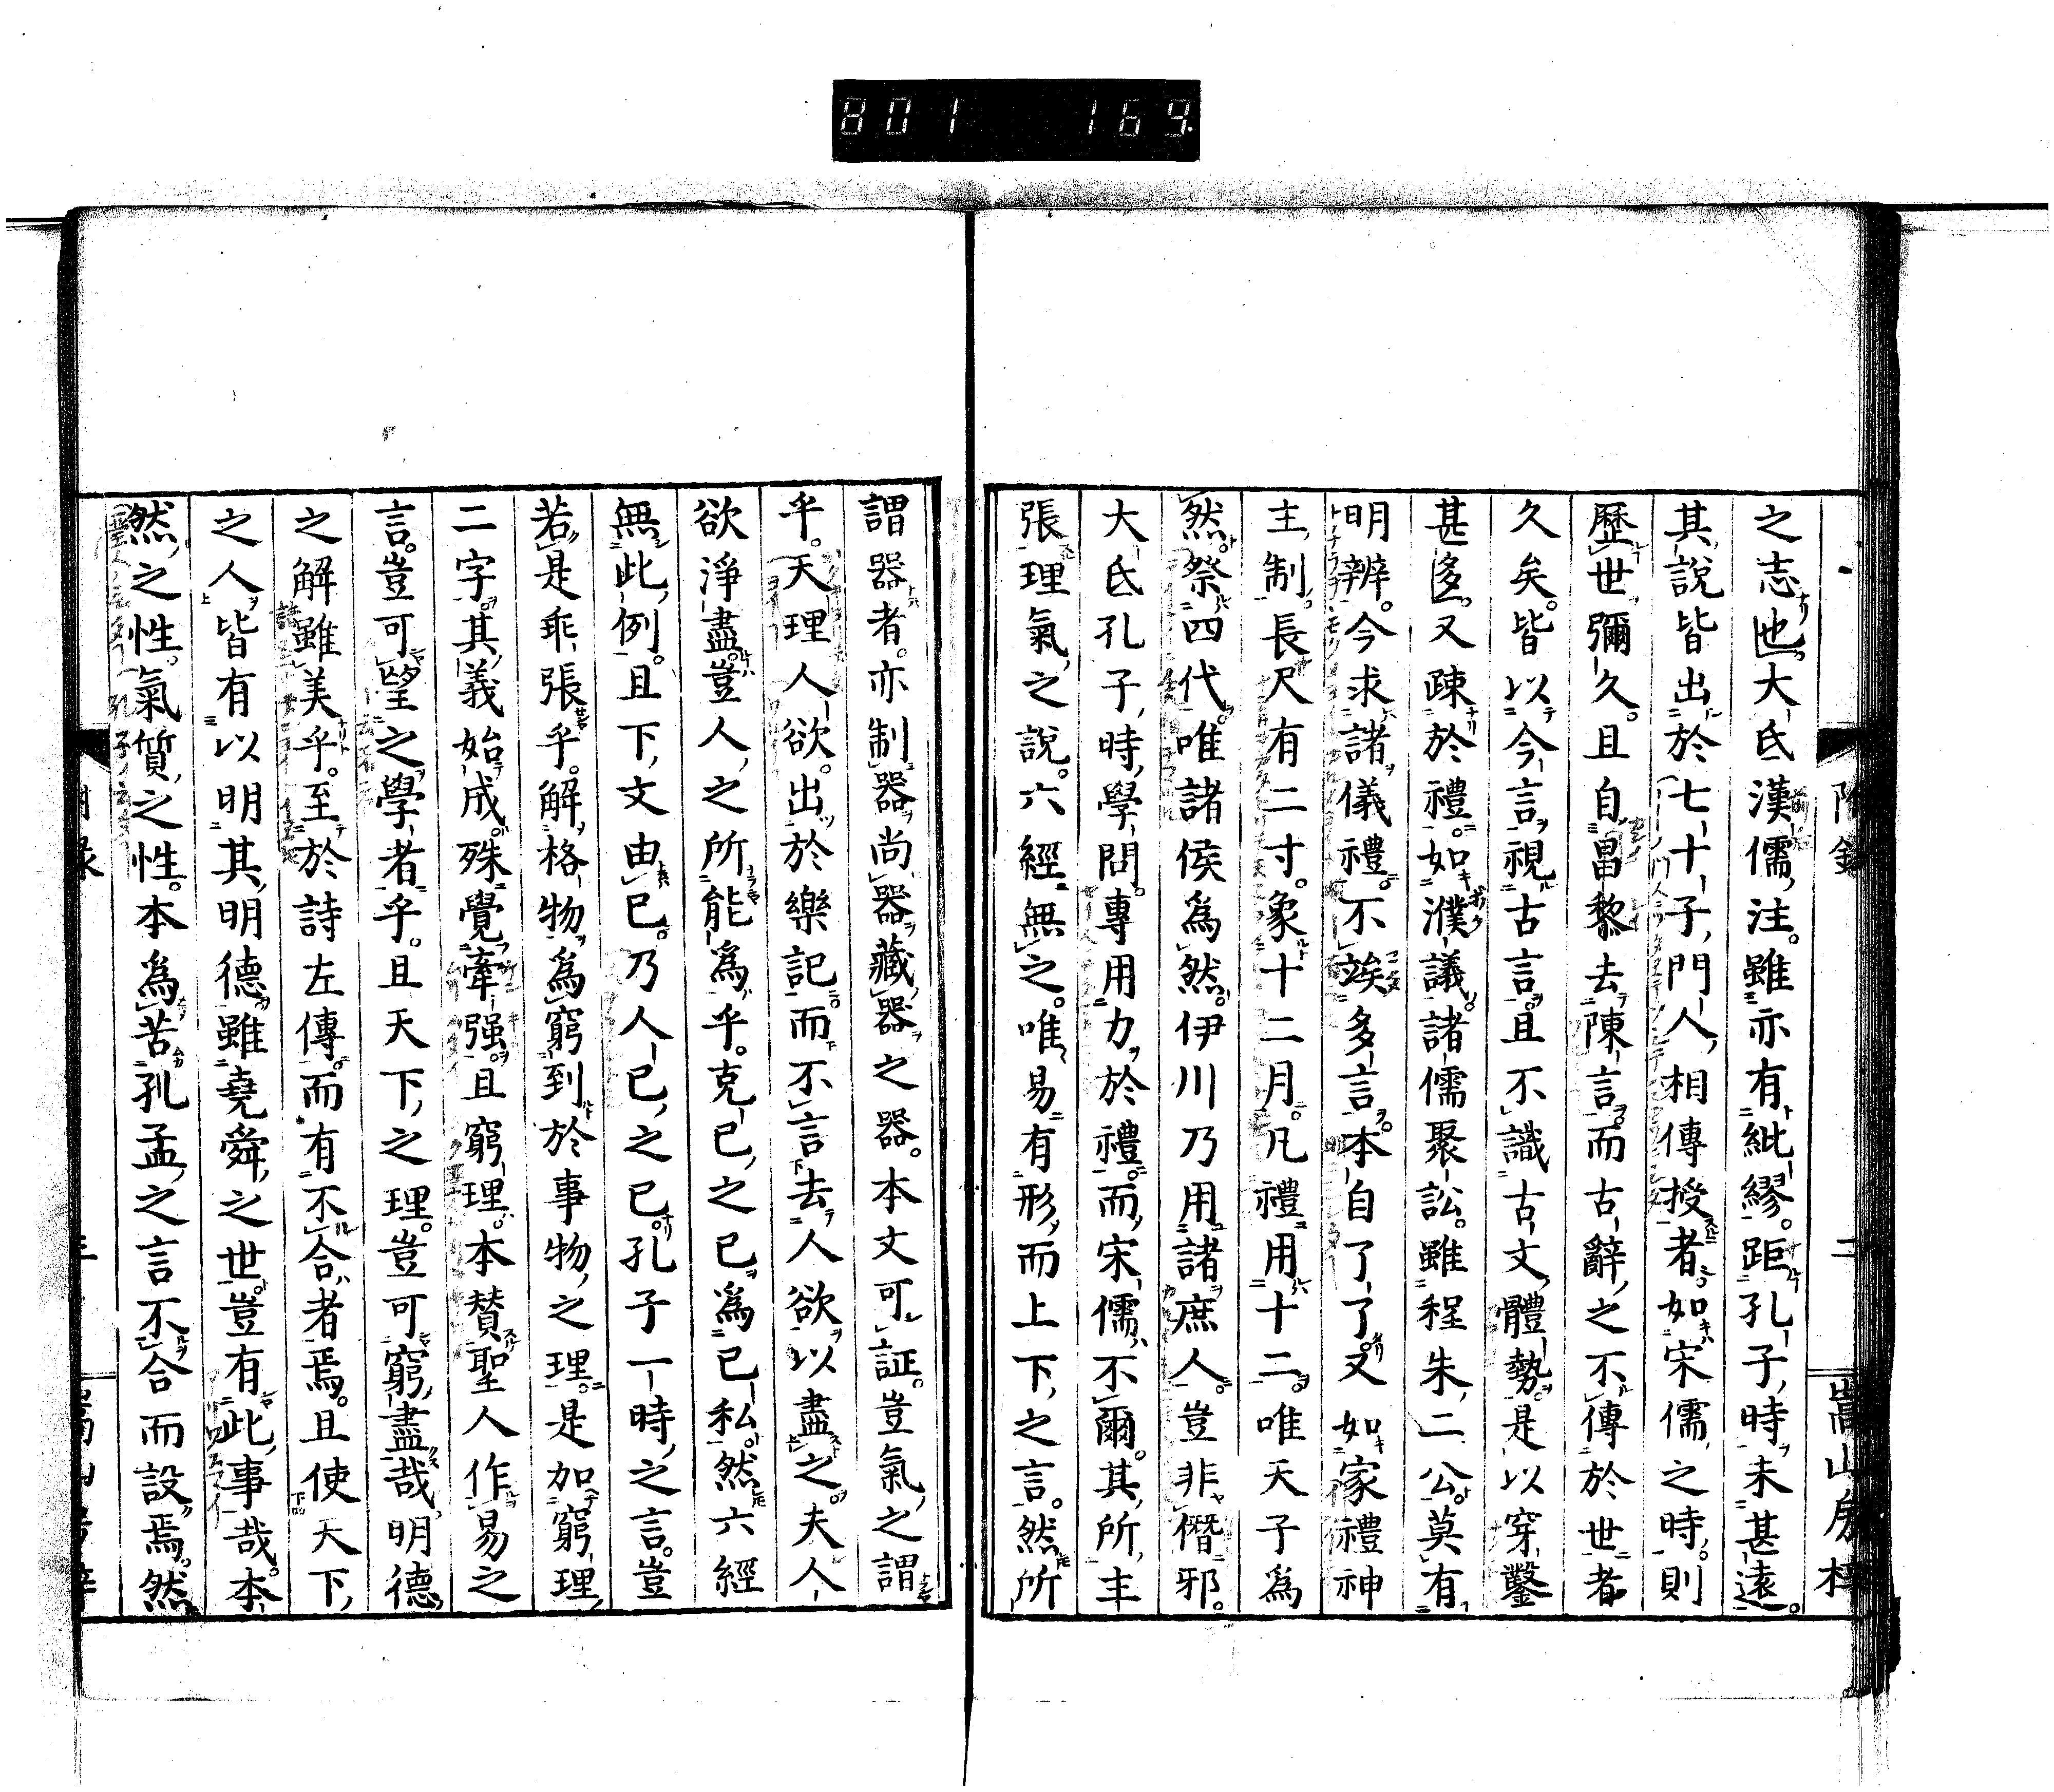 801 169.
附錄 二 嵩山房梓
之志也。大氐漢儒注。雖亦有紕繆。距孔子時未甚遠。
其說皆出於七十子門人相傳授者。如宋儒之時。則
歷世彌久。且自昌黎去陳言。而古辭之不傳於世者
久矣。皆以今言視古言。且不識古文體勢。是以穿鑿
甚多。又疎於禮。如濮議。諸儒聚訟。雖程朱二公。莫有
明辨。今求諸儀禮。不竢多言。本自了了。又如家禮神
主制。長尺有二寸。象十二月。凡禮用十二。唯天子為
然。祭四代。唯諸侯為然。伊川乃用諸庶人。豈非僭邪。
大氐孔子時學問。專用力於禮。而宋儒不爾。其所主
張理氣之說。六經無之。唯易有形而上下之言。然所
謂器者。亦制器尚器藏器之器。本文可証。豈氣之謂
乎。天理人欲。出於樂記。而不言去人欲以盡之。夫人
欲淨盡。豈人之所能為乎。克己之己。為己私。然六經
無此例。且下文由己。乃人己之己。孔子一時之言。豈
若是乖張乎。解格物為窮到於事物之理。是加窮理
二字。其義始成。殊覺牽强。且窮理。本贊聖人作易之
言。豈可望之學者乎。且天下之理。豈可窮盡哉。明德
之解雖美乎。至於詩左傳。而有不合者焉。且使天下
之人皆有以明其明德。雖堯舜之世。豈有此事哉。本
然之性。氣質之性。本為苦孔孟之言不合而設焉。然